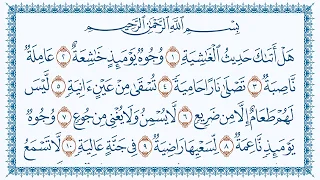 بِسْمِ اللَّهِ الرَّحْمَٰنِ الرَّحِيمِ
هَلْ أَتَىٰكَ حَدِيثُ الْغَٰشِيَةِ ١ وُجُوهٌ يَوْمَئِذٍ خَٰشِعَةٌ ٢ عَامِلَةٌ
نَّاصِبَةٌ ٣ تَصْلَىٰ نَارًا حَامِيَةً ٤ تُسْقَىٰ مِنْ عَيْنٍ ءَانِيَةٍ ٥ لَّيْسَ
لَهُمْ طَعَامٌ إِلَّا مِن ضَرِيعٍ ٦ لَّا يُسْمِنُ وَلَا يُغْنِى مِن جُوعٍ ٧ وُجُوهٌ
يَوْمَئِذٍ نَّاعِمَةٌ ٨ لِّسَعْيِهَا رَاضِيَةٌ ٩ فِى جَنَّةٍ عَالِيَةٍ ١٠ لَّا تَسْمَعُ